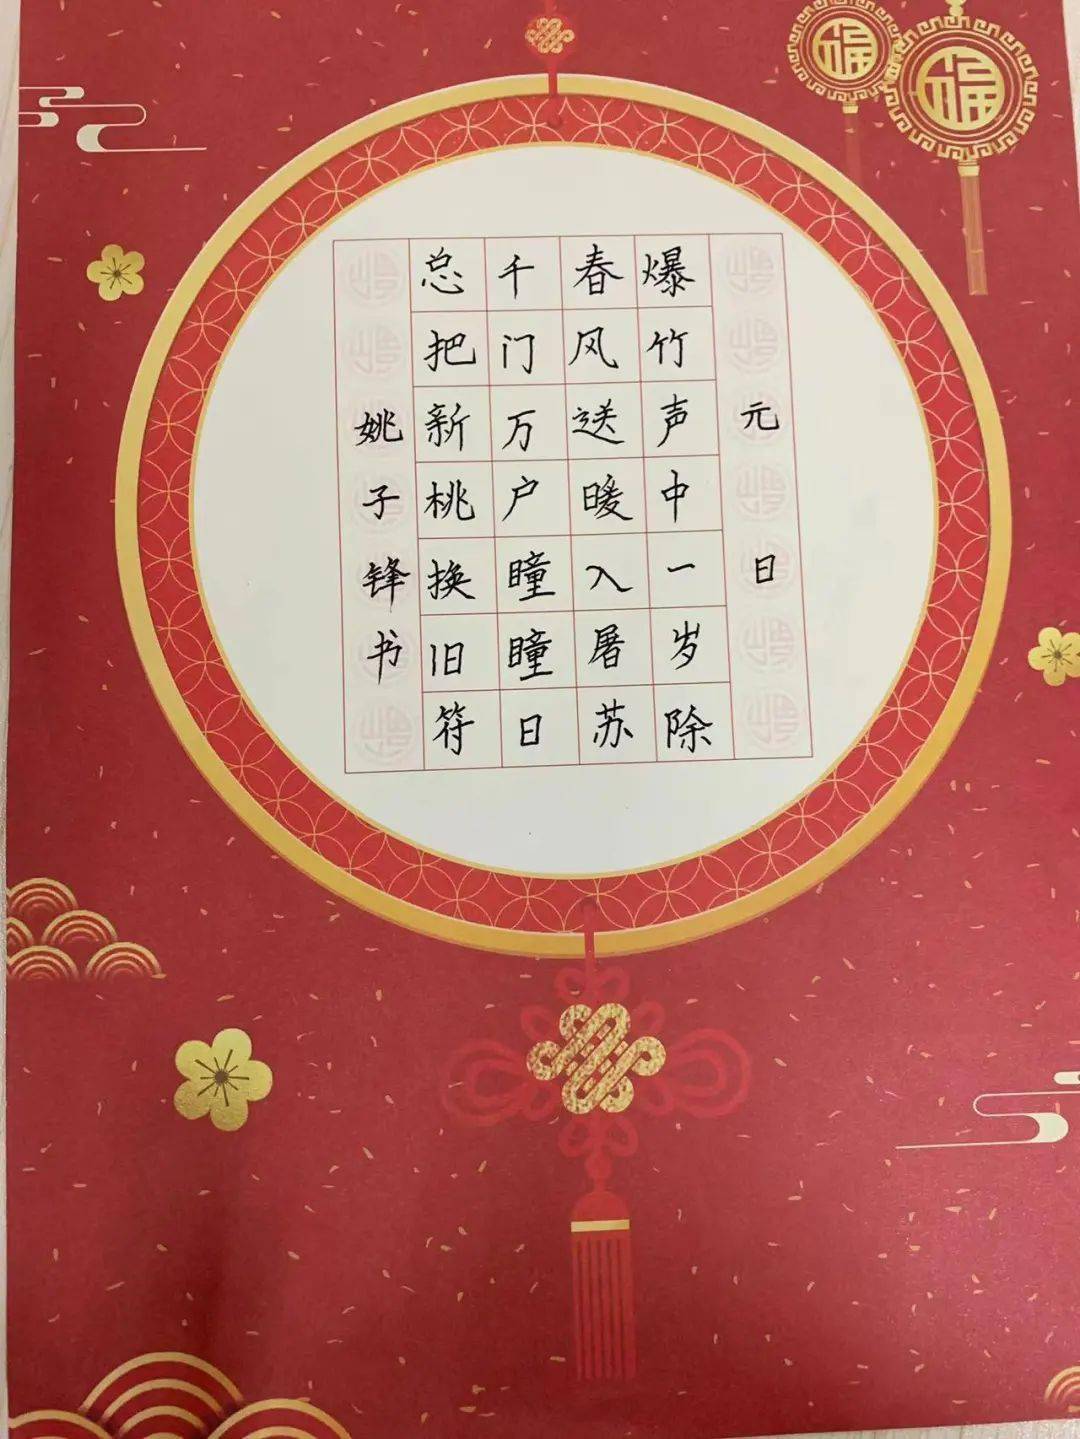 元日
爆竹声中一岁除
春风送暖入屠苏
千门万户瞳瞳日
总把新桃换旧符
姚子锋书
福
福